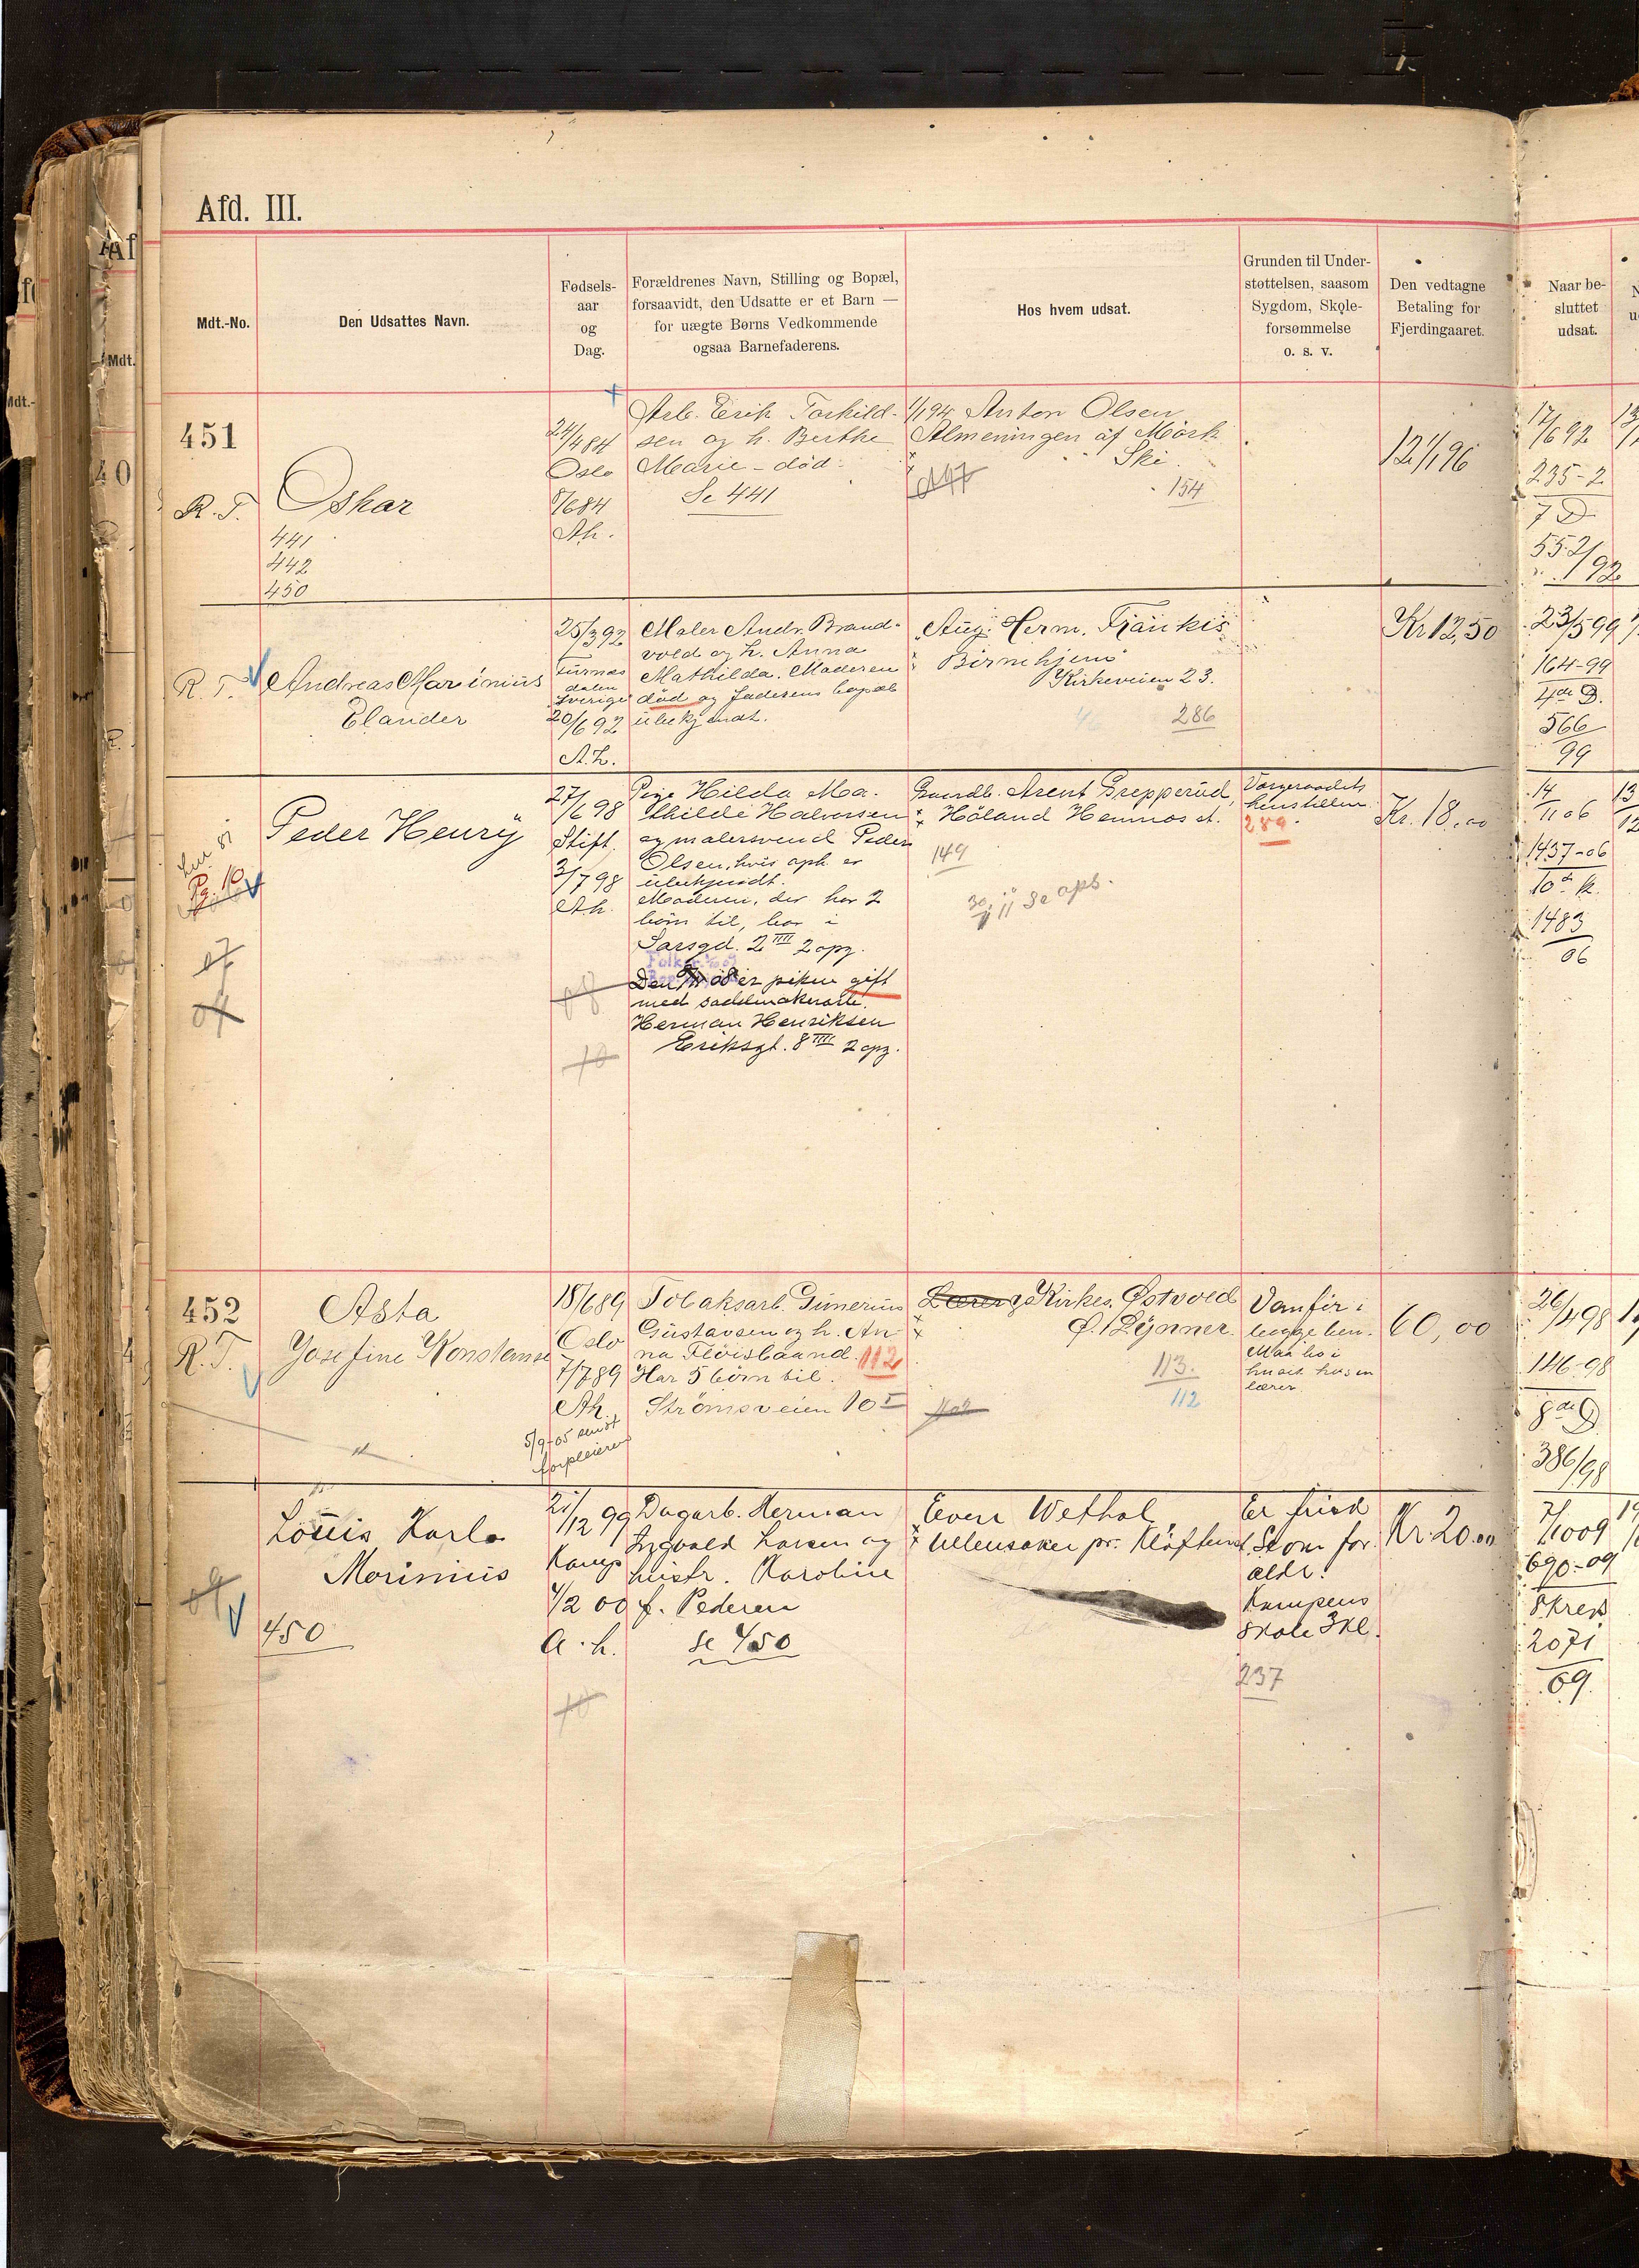 Afd. III.
Mdt.-No.
Den Udsattes Navn.
Fødsels-
aar
og
Dag.
Forældrenes Navn, Stilling og Bopæl,
forsaavidt, den Udsatte er et Barn —
for uægte Børns Vedkommende
ogsaa Barnefaderens.
Hos hvem udsat.
Grunden til Under-
støttelsen, saasom
Sygdom, Skole-
forsømmelse
o. s. v.
Den vedtagne
Betaling for
Fjerdingaaret.
Naar be-
sluttet
udsat.
451
R. T.
Oskar
441
442
450
24/4 84
Oslo
8/6 84
Ah.
Arb. Erik Torkild-
sen og h. Berthe
Marie - död.
Se 441
1/1 94 Anton Olsen
Almeningen af Mörk
Ski.
154
12 1/1 96
17/6 92
235-2
7 D
552/92
R. T.
Andreas Marinius
Elander
25/3 92
Furnes
dalen
Sverige
20/6 92
A.h.
Maler Andr. Brand-
vold og h. Anna
Mathilda. Moderen
död og faderens bopæl
ubekjendt.
Aug. Herm. Frankis
Börnehjem
Kirkeveien 23.
286
Kr 12,50
23/5 99
164-99
4de D.
566
99
Pg. 10
Peder Henry
27/6 98
Stift.
3/7 98
Ah.
Pige Hilda Ma-
thilde Halvorsen
og malersvend Peder
Olsen, hvis oph. er
ubekjendt.
Moderen, der har 2
börn til, bor i
Sarsgd. 2 IIII 2 opg.
Den er piken gift
med saddelmakerarb.
Herman Henriksen
Eriksgt. 8 III 2 opg.
Gaardb. Arent Grepperud,
Höland Hemnes st.
149
Se opb.
Værgeraadets
henstillen.
289
Kr. 18.00
14/11 06
1437-06
10de K.
1483
06
452
R. T.
Asta
Josefine Konstanse
18/6 89
Oslo
7/7 89
Ah.
5/9-05 sendt
forpleieren
Tobaksarb. Gunerius
Gustavsen og h. An-
na Flöisbaand. 112
Har 5 börn til.
Strömsveien 10 I
Lærer Kirkes. Østvold
Ø. Rynner.
113.
112
Vanfør i
begge ben.
Maa bo i
huset hos en
lærer.
60,00
26/4 98
146-98
8de D.
386/98
Louis Karlo
Marinius
450
21/12 99
Kamp
4/2 00
A. h.
Dagarb. Herman
Ingvald Larsen og
hustr. Karoline
f. Pedersen
Se 450
Even Wethal
Ullensaker pr. Klöften st.
Er frisk
Som for
ældr.
Kampens
Skole 3 kl.
237
Kr. 20.00
7/10 09
690-09
8 kreds
2071
09.